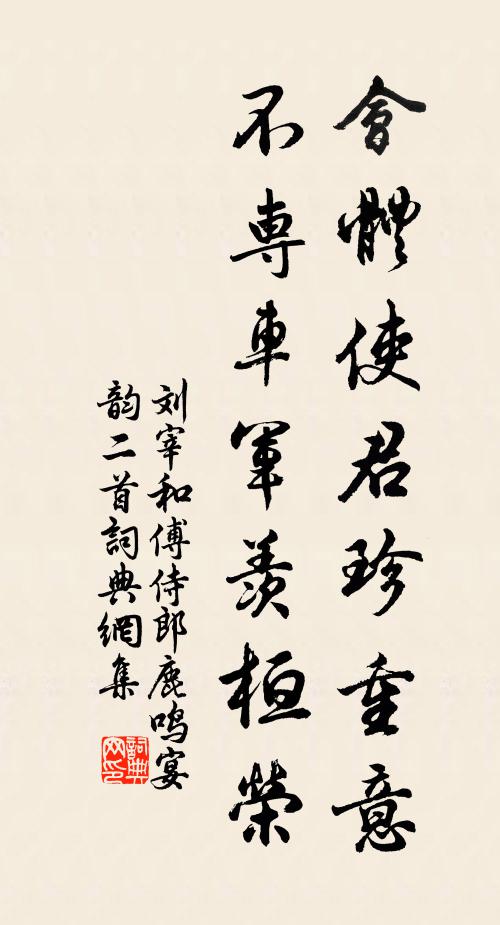 會體使君珍重意
不專車軍羨桓榮
刘宰和傅侍郎鹿鸣宴
韵二首詞典網集
詞典网印